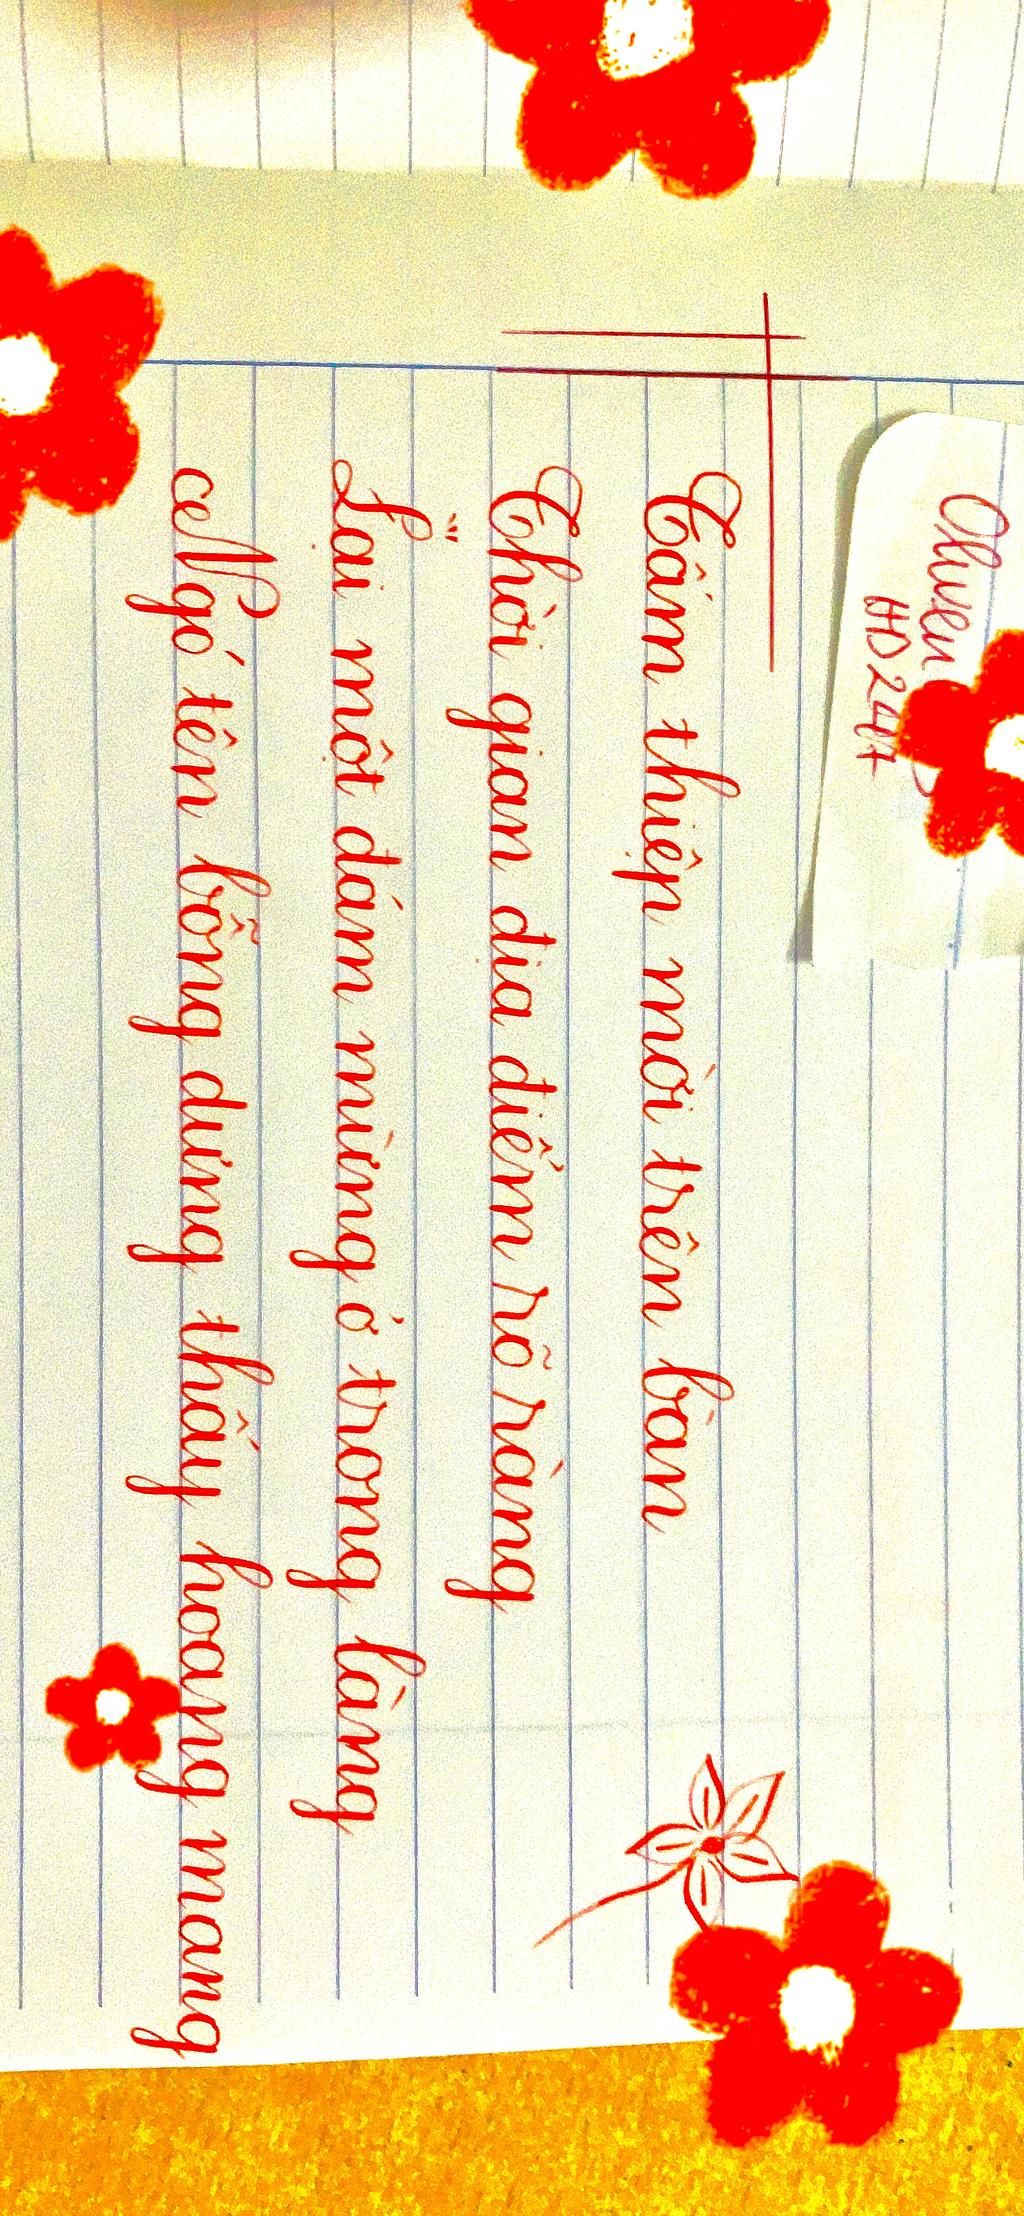 HD24A
Tấm thiệp mời trên bàn
Thời gian địa điểm rõ ràng
Lại một đám mừng ở trong làng
Ngó tên bỗng dưng thấy hoang mang